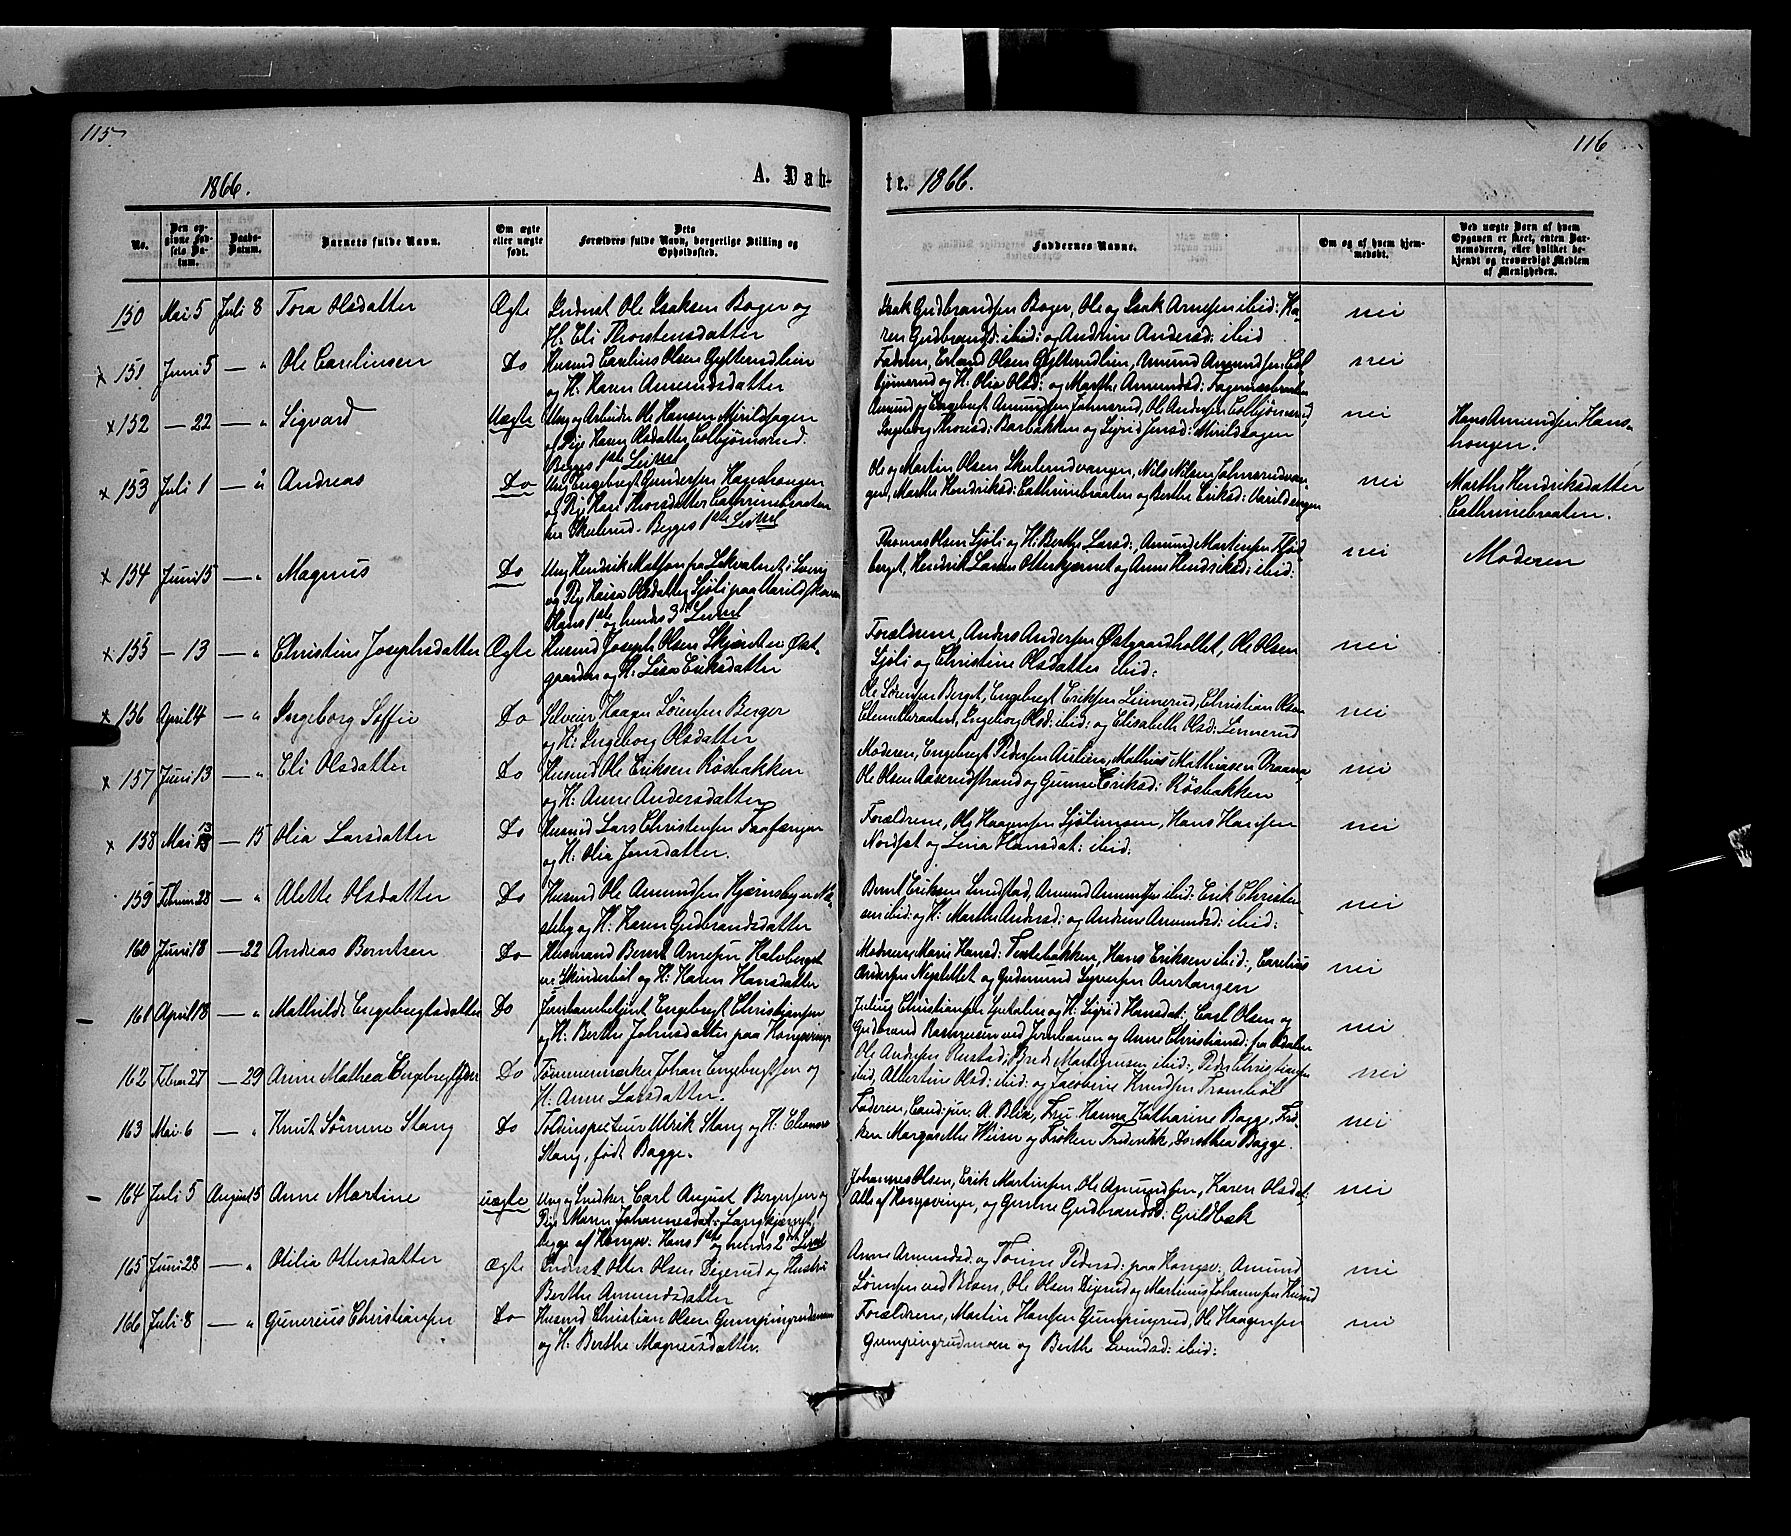 115
116
1866.
A. Dåb-
te. 1866.
No.
Den opgivne Fødsels Datum.
Daabs-Datum.
Barnets fulde Navn.
Om ægte eller uægte født.
Dets Forældres fulde Navn, borgerlige Stilling og Opholdssted.
Faddernes Navne.
Om og af hvem hjemmedøbt.
Ved uægte Børn af hvem Opgaven er skeet, enten Barnemoderen, eller hvilket bekjendt og troværdigt Medlem af Menigheden.
150 Mai 5 Juli 8 Tora Olsdatter Ægte Inderst Ole Isaksen Boger og
H: Eli Thorstensdatter
Isak Gudbrandsen Boger, Ole og Isak Arnesen ibid: Ka-
ren Gudbrandsd: ibid: og Andrine Andersd: ibid
nei
x 151 Juni 5 — " Ole Carelinsen Do Husmd Carelius Olsen Gyltemdlien
og H: Karen Amundsdatter
Faderen, Erland Olsen Gyltemdlien, Amund Amundsen Col
bjørnsrud og H: Olia Olsd: og Marthe Amundsd:
nei
x 152 — 22 — " Sigvard Uægte Ung og Arbeider Ole Hansen Mirildhagen
og Pige Karen Olsdatter Colbjørnsrud.
Begges 1ste Leiml
Amund og Engebregt Amundsen Johnsrud, Ole Andersen Colbjørnsrud
Ingeborg Thorsd: Barbakken og Sigrid Jensd: Mirildhagen
nei
Hans Amundsen Hans-
haugen.
x 153 Juli 1 — " Andreas Do Ung Engebregt Gundersen Hanshaugen
og Pige Kari Thorsdatter Cathrinebraaten
Skulerud. Begges 1ste Leiml
Ole og Martin Olsen Skulerudvangen, Nils Nilsen Johnsrudvan-
gen, Marthe Hendriksd: Cathrinebraaten og Berthe Eriksd:
nei
Marthe Hendriksdatter
Cathrinebraaten.
x 154 Juni 15 — " Magnus Do Ung Hendrik Matsson fra Lekvatnet i Sverig
og Pige Kaisa Olsdatter Sjøli paa Varildskoven
Hans 1ste og hendes 3d Leiml
Thomas Olsen Sjøli og H: Berthe Larsd:, Amund Martinsen
berget, Hendrik Larsen Otterkjærnet og Anne Hendriksd: ibid:
nei
Moderen
x 155 — 13 — " Christine Josephsdatter Ægte Husmd Joseph Olsen Skjænten Øst-
gaarden og H: Lisa Eriksdatter
Forældrene, Anders Andersen Østgaardholtet, Ole Olsen
Sjøli og Christine Olsdatter ibid:
nei
x 156 April 4 — " Ingeborg Soffie Do Selveier Haagen Sørensen Berger
og H: Ingeborg Olsdatter
Ole Sørensen Berget, Engebregt Eriksen Linnerud, Christian Olsen
Clemetbraaten, Ingeborg Olsd: ibid: og Elisabeth Olsd: Linnerud
nei
x 157 Juni 13 — " Eli Olsdatter Do Husmd Ole Eriksen Røsbakken
og H: Anne Andersdatter
Moderen, Engebregt Pedersen Aulien, Mathias Mathiasen Vraana
Ole Olsen Aaserudstrand og Gunne Eriksd: Røsbakken
nei
x 158 Mai 13 — 15 Olia Larsdatter Do Husmd Lars Christensen Faafængen
og H: Olia Jensdatter.
Forældrene, Ole Haagensen Sjølimoen, Hans Hansen
Nordset og Lina Hansdat: ibid:
nei
159 Februar 28 — " Alette Olsdatter Do Husmd Ole Amundsen Hjærnsbyen Na-
steby og H: Karen Gudbrandsdatter
Bernt Eriksen Lundstad, Amund Amundsen ibid: Erik Christen-
sen ibid: og H: Marthe Andersd: og Andrine Amundsd: ibid:
nei
160 Juni 18 — 22 Andreas Berntsen Do Husmand Bernt Arnesen Halvberget
u: Skinderbøl og H: Karen Hansdatter
Moderen, Marie Hansd: Tostebakken, Hans Eriksen ibid:, Carelius
Andersen Nepiltet og Gudmund Syversen Austangen
nei
161 April 18 — " Mathilde Engebregtsdatter Do Jernbanebetjent Engebregt Christiansen
og H: Berthe Johnsdatter paa Kongsvinger
Julius Christiansen og H: Sigrid Hansdat: Carl Olsen og
Gudbrand Rasmussen ved Jernbanen og Anne Christiansd: fra Odalen
nei
162 Februar 27 — 29 Anne Mathea Engebregtsdtr Do Tømmermærker Johan Engebregtsen og
H: Anne Larsdatter.
Ole Andersen Rustad, Brede Martinusen ibid:, Peder Christiansen
ibid, Albertine Olsd: ibid: og Jacobine Knudsen Trombøl
nei
163 Mai 6 — " Knut Sømme Stang Do Toldinspecteur Ulrik Stang og H: Eleonore
Stang, født Bagge.
Faderen, Cand: jur. A. Blix, Fru Hanna Katharine Bagge, Frø-
ken Margarethe Weiser og Frøken Frederikk. Dorothea Bagge.
nei
164 Juli 5 August 5 Anne Martine uægte Ung og Snedker Carl August Bergersen og
Pige Maren Johannesdat: Langkjærnet,
begge af Kongsv: Hans 1ste og hendes 2det Leiml
Johannes Olsen, Erik Martinsen, Ole Amundsen, Karen Olsdat:
Alle af Kongsvinger, og Gunne Gudbrandsd: Guldbæk
nei
165 Juni 28 — " Otilia Ottersdatter Ægte Inderst Otter Olsen Digerud og Hustru
Berthe Amundsdatter
Anne Amundsd: og Torine Pedersd: paa Kongsv:, Amund
Sørensen ved Broen, Ole Olsen Digerud og Martinus Johannesen
nei
166 Juli 8 — " Gunereus Christiansen Do Husmd Christian Olsen Gumpingrudmoen
og H: Berthe Magneusdatter.
Forældrene, Martin Hansen Gumpingrud, Ole Haagensen
Gumpingrudmoen og Berthe Svendsd: ibid:
nei